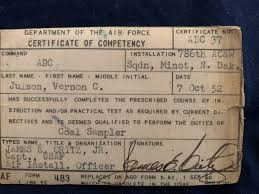 DEPARTMENT OF THE AIR FORCE
CERTIFICATE OF COMPETENCY
ADC 37
COMMAND
INSTALLATION
786th AC&W
ADC
Sqdn, Minot, N. Dak.
LAST NAME - FIRST NAME - MIDDLE INITIAL
DATE
Julson, Vernon C.
7 Oct 52
HAS SUCCESSFULLY COMPLETED THE PRESCRIBED COURSE OF INSTRUCTION
AND/OR PRACTICAL TEST AS REQUIRED BY CURRENT
DIRECTIVES AND IS DEEMED QUALIFIED TO PERFORM THE DUTIES OF
Coal Sampler
TYPED NAME, TITLE & ORGANIZATION
SIGNATURE
JAMES E. ORITZ, JR.
Capt., USAF
Air Install. Officer
AF FORM 483
REPLACES DA AGO FORM